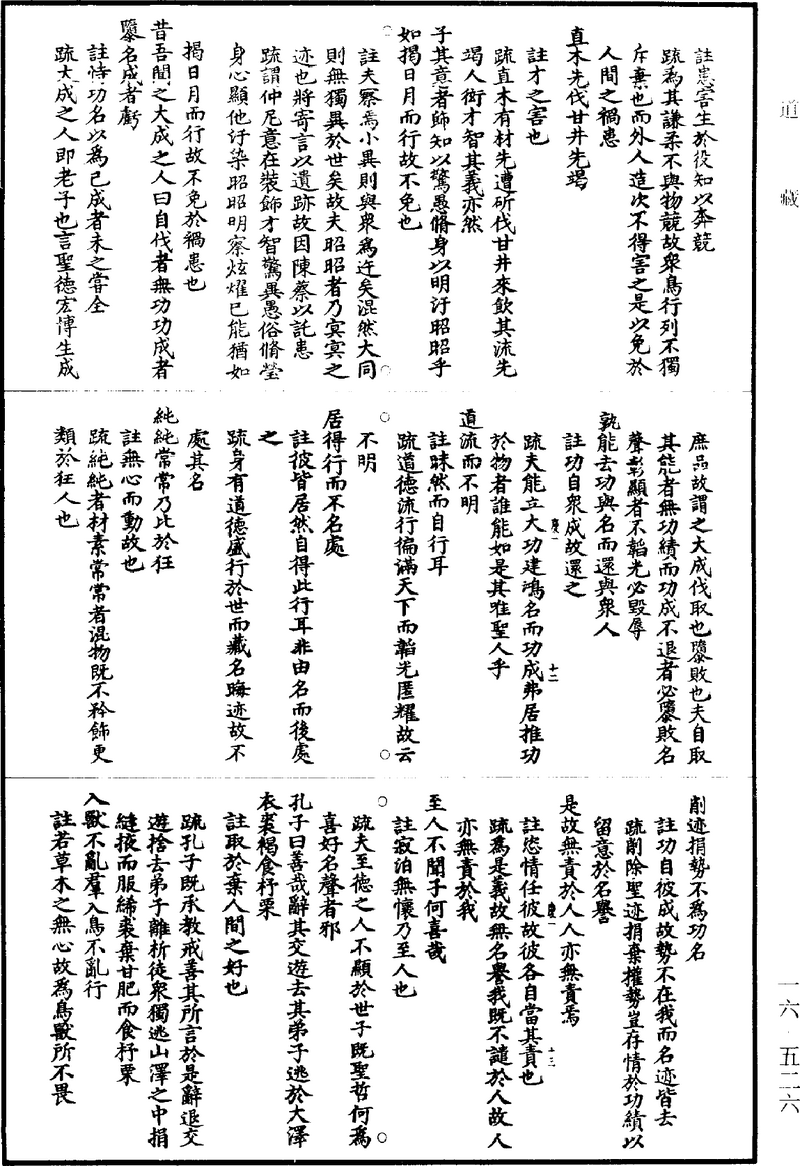 道藏
註患害生於役知以奔競
疏為其謙柔不與物競故衆鳥行列不獨
斥棄也而外人造次不得害之是以免於
人間之禍患
直木先伐甘井先竭
註才之害也
疏直木有材先遭斫伐甘井來飲其流先
竭人衒才智其義亦然
子其意者飾知以驚愚脩身以明汙昭昭乎
如揭日月而行故不免也
註夫察焉小異則與衆為迕矣混然大同
則無獨異於世矣故夫昭昭者乃冥冥之
迹也將寄言以遺跡故因陳蔡以託患
疏謂仲尼意在裝飾才智驚異愚俗脩瑩
身心顯他汙染昭昭明察炫燿己能猶如
揭日月而行故不免於禍患也
昔吾聞之大成之人曰自伐者無功功成者
隳名成者虧
註恃功名以為已成者未之嘗全
疏大成之人即老子也言聖德宏博生成
庶品故謂之大成伐取也隳敗也夫自取
其能者無功績而功成不退者必隳敗名
聲彰顯者不韜光必毀辱
孰能去功與名而還與衆人
註功自衆成故還之
疏夫能立大功建鴻名而功成弗居推功
於物者誰能如是其唯聖人乎
道流而不明
註昧然而自行耳
疏道德流行徧滿天下而韜光匿耀故云
不明
居得行而不名處
註彼皆居然自得此行耳非由名而後處
之
疏身有道德盛行於世而藏名晦迹故不
處其名
純純常常乃比於狂
註無心而動故也
疏純純者材素常常者混物既不矜飾更
類於狂人也
削迹捐勢不為功名
註功自彼成故勢不在我而名迹皆去
疏削除聖迹捐棄權勢豈存情於功績以
留意於名譽
是故無責於人人亦無責焉
註恣情任彼故彼各自當其責也
疏為是義故無名譽我既不譴於人故人
亦無責於我
至人不聞子何喜哉
註寂泊無懷乃至人也
疏夫至德之人不顯於世子既聖哲何為
喜好名聲者邪
孔子曰善哉辭其交遊去其弟子逃於大澤
衣裘褐食杼栗
註取於棄人間之好也
疏孔子既承教戒善其所言於是辭退交
遊捨去弟子離析徒衆獨逃山澤之中捐
縫掖而服絺裘棄甘肥而食杼栗
入獸不亂羣入鳥不亂行
註若草木之無心故為鳥獸所不畏
一六·五二六